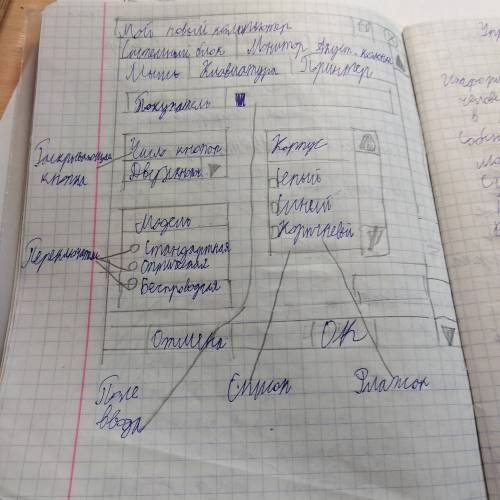 Мой новый компьютер
Системный блок Монитор Акуст. колонки
Мышь Клавиатура Принтер
Покупатель
Раскрывающая кнопка
Число кнопок
Двухкнопоч
Корпус
Серый
Синий
Коричневый
Модель
Переключатели
Стандартная
Оптическая
Беспроводная
Отмена
ОК
Поле ввода
Список
Флажок